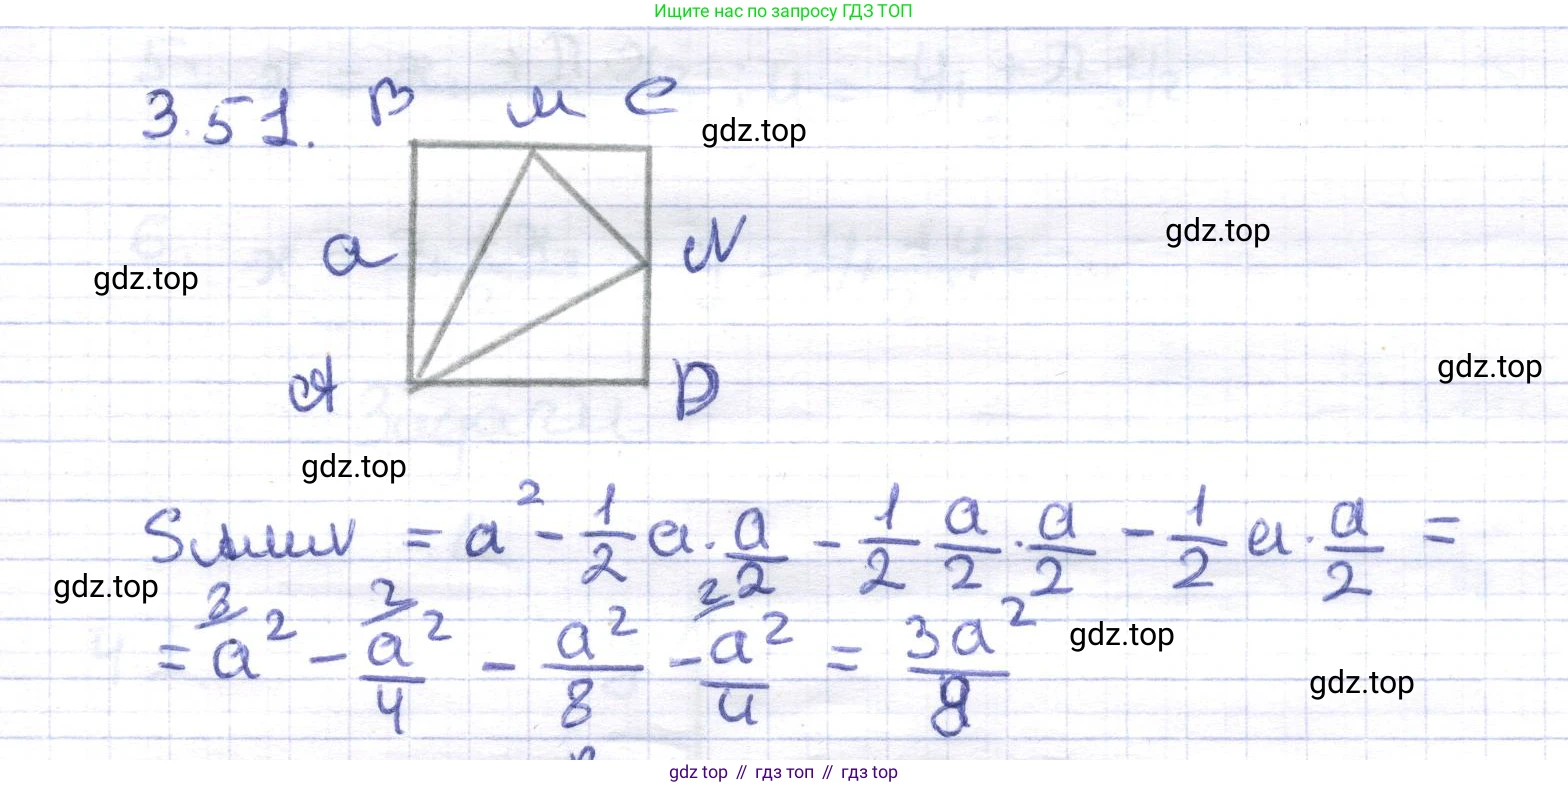 Ищите нас по запросу ГДЗ ТОП
3.51. B M C
gdz.top
a N
gdz.top
gdz.top
gdz.top
A D
gdz.top
= a² - 1/2 a · a/2 - 1/2 a/2 · a/2 - 1/2 a · a/2 =
gdz.top
= a² - a²/4 - a²/8 - a²/4 = 3a²/8
gdz.top
gdz.top
gdz top // гдз топ // гдз top